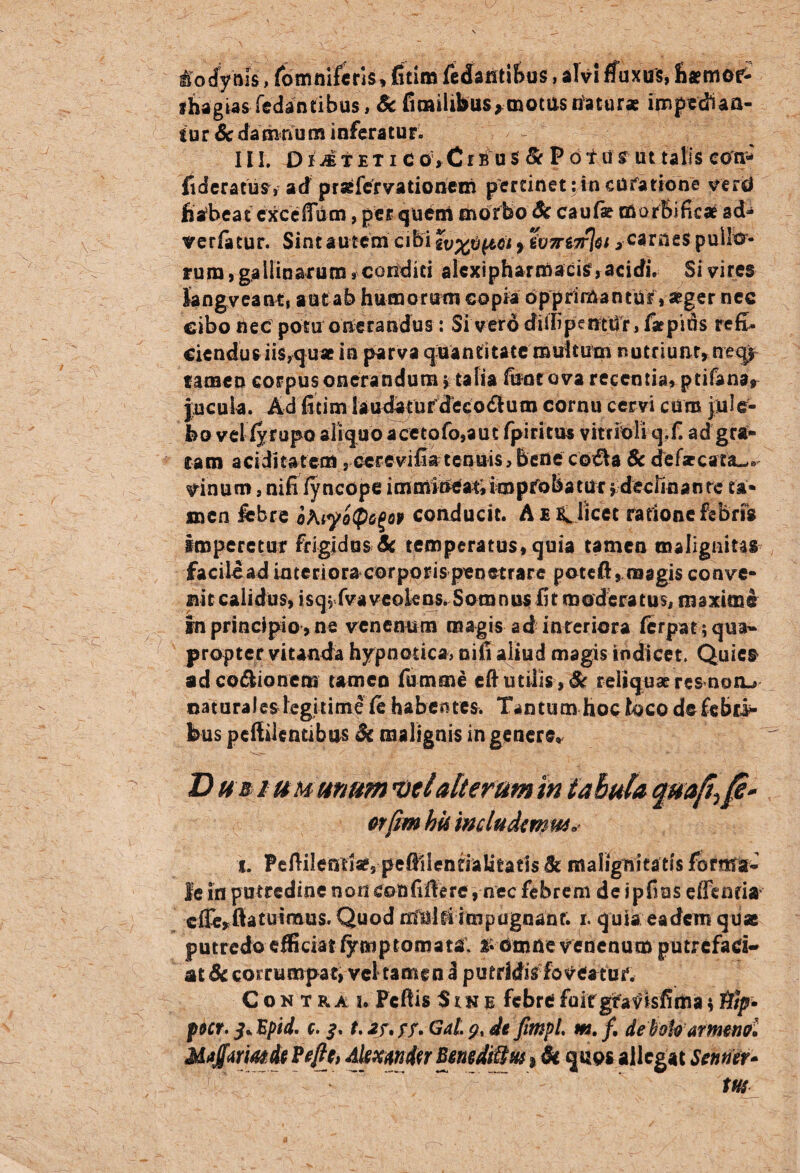 ἀodynis, somniferis, sitim sedantibus, alvi fluxus, hæmor-
rhagias sedantibus, & similibus, motus naturæ impedian-
tur & damnum inferatur.
III. DIÆTETICO, CIBUS & POTUS ut talis con-
sideratus, ad præservationem pertinet: in curatione verò
habeat excessum, per quem morbo & causæ morbificæ ad-
versatur. Sint autem cibi ἐυχύμοι, ἐυπεπ]οι, carnes pullo-
rum, gallinarum, conditi alexipharmacis, acidi. Si vires
langveant, aut ab humorum copia opprimantur, æger nec
cibo nec potu onerandus: Si verò dissipentur, sæpius refi-
ciendus iis, quæ in parva quantitate multum nutriunt, neq;
tamen corpus onerandum; talia sunt ova recentia, ptisana,
jucula. Ad sitim laudatur decoctum cornu cervi cum jule-
bo vel syrupo aliquo acetoso, aut spiritus vitrioli q.s. ad gra-
tam aciditatem, cerevisia tenuis, bene cocta & defæcata,
vinum, nisi syncope immineat, improbatur; declinante ta-
men febre ὀλιγόφοξον conducit. AER, licet ratione febris
imperetur frigidus & temperatus, quia tamen malignitas
facilè ad interiora corporis penetrare potest, magis conve-
nit calidus, isq; svaveolens. Somnus sit moderatus, maximè
in principio, ne venenum magis ad interiora serpat; qua-
propter vitanda hypnotica, nisi aliud magis indicet. Quies
ad coctionem tamen summè est utilis, & reliquæ res non
naturales legitimè se habentes. Tantum hoc loco de febri-
bus pestilentibus & malignis in genere.
DUBIUM unum vel alterum in tabula quasi, se-
orsim his includemus.
1. Pestilentiæ, pestilentialitatis & malignitatis forma-
le in putredine non consistere, nec febrem de ipsius essentia
esse, statuimus. Quod multi impugnant. 1. quia eadem quæ
putredo efficiat symptomata. 2. omne venenum putrefaci-
at & corrumpat, vel tamen à putridis foveatur.
CONTRA 1. Pestis SINE febre fuit gravissima; Hip-
pocr. 3. Epid. c. 3. t. 25. 55. Gal. 9. de simpl. m. f. de bolo armeno.
Massarias de Peste, Alexander Benedictus, & quos allegat Senner-
tus